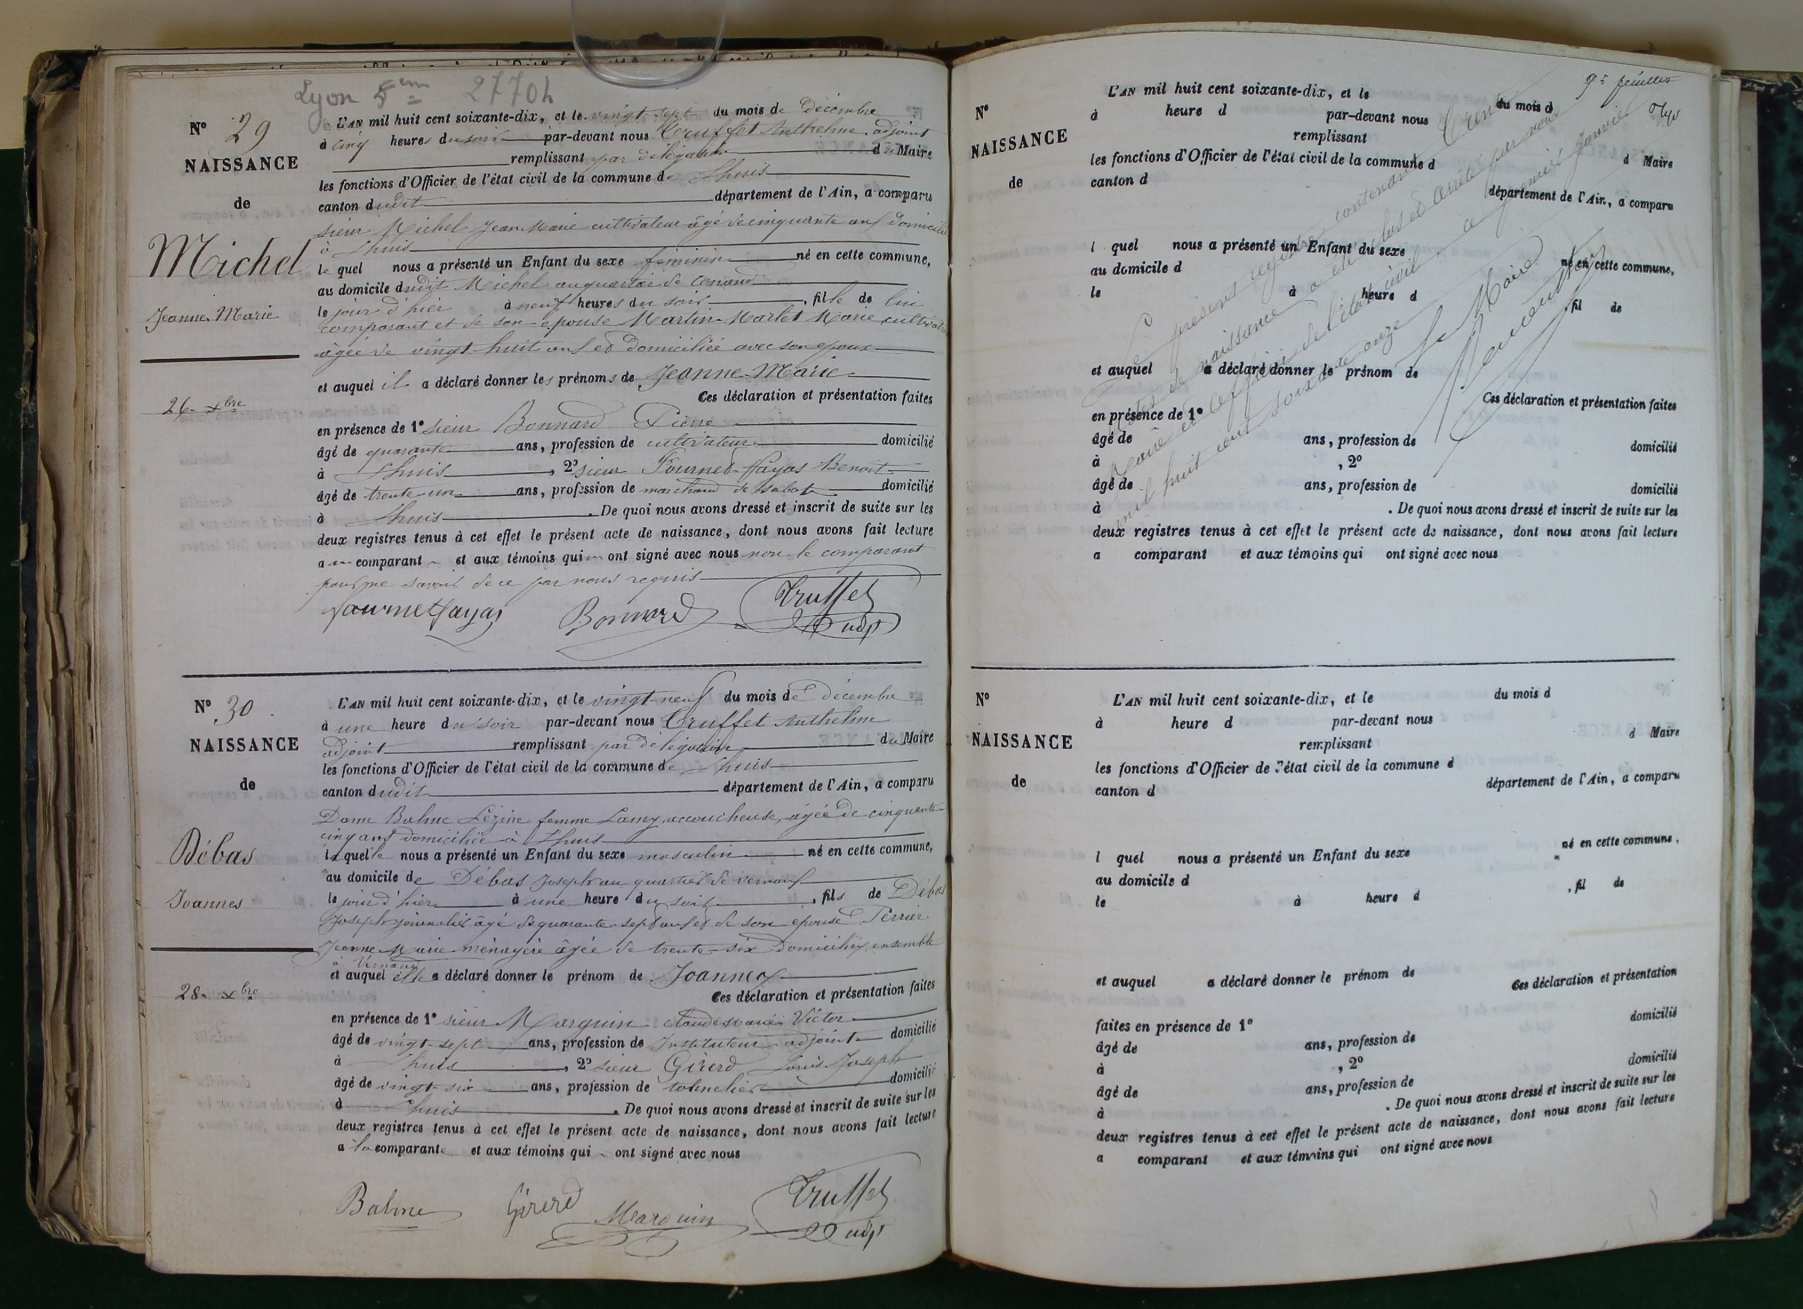 Lyon 5em 2770h
N° 29
NAISSANCE
de
Michel
Jeanne-Marie
26 Xbre
L'AN mil huit cent soixante-dix, et le vingt-sept du mois de décembre
à cinq heures du soir par-devant nous Truffet Anthelme adjoint
remplissant par délégation du Maire
les fonctions d'Officier de l'état civil de la commune de Lhuis
canton dudit département de l'Ain, a comparu
sieur Michel Jean Marie cultivateur âgé de cinquante ans domicilié
à Lhuis
lequel nous a présenté un Enfant du sexe féminin né en cette commune,
au domicile dudit Michel au quartier de
le jour d'hier à neuf heures du soir, fille de lui
comparant et de son épouse Martin-Marlet Marie
âgée de vingt huit ans et domiciliée avec son époux
et auquel il a déclaré donner les prénoms de Jeanne-Marie
Ces déclaration et présentation faites
en présence de 1° sieur Bonnard Pierre
âgé de quarante ans, profession de cultivateur domicilié
à Lhuis, 2° sieur Fournet-Fayas Benoit
âgé de trente-un ans, profession de marchand de domicilié
à Lhuis. De quoi nous avons dressé et inscrit de suite sur les
deux registres tenus à cet effet le présent acte de naissance, dont nous avons fait lecture
au comparant et aux témoins qui ont signé avec nous non le comparant
pour ne savoir de ce par nous requis
Fournet fayas Bonnard Truffet
Adjt
N° 30
NAISSANCE
de
Débas
Joannes
28 Xbre
L'AN mil huit cent soixante-dix, et le vingt-neuf du mois de décembre
à une heure du soir par-devant nous Truffet Anthelme
adjoint remplissant par délégation du Maire
les fonctions d'Officier de l'état civil de la commune de Lhuis
canton dudit département de l'Ain, a comparu
Dame Balme femme Lamy accoucheuse, âgée de cinquante
cinq ans domiciliée à Lhuis
laquelle nous a présenté un Enfant du sexe masculin né en cette commune,
au domicile de Débas Joseph au quartier de
le jour d'hier à une heure du soir, fils de Débas
Joseph journalier âgé de quarante-sept ans et de son épouse
Jeanne Marie ménagère âgée de trente-six domiciliés ensemble
à
et auquel elle a déclaré donner le prénom de Joannes
Ces déclaration et présentation faites
en présence de 1° sieur Marguin Claude Victor
âgé de vingt-sept ans, profession de Instituteur-adjoint domicilié
à Lhuis, 2° sieur Girerd Louis Joseph
âgé de vingt-six ans, profession de domicilié
à Lhuis. De quoi nous avons dressé et inscrit de suite sur les
deux registres tenus à cet effet le présent acte de naissance, dont nous avons fait lecture
a la comparante et aux témoins qui ont signé avec nous
Balme Girerd Marguin Truffet
Adjt
9e feuillet
N°
NAISSANCE
de
L'AN mil huit cent soixante-dix, et le du mois d
à heure d par-devant nous
remplissant d Maire
les fonctions d'Officier de l'état civil de la commune d
canton d département de l'Ain, a comparu
l quel nous a présenté un Enfant du sexe né en cette commune,
au domicile d
le à heure d fil de
et auquel a déclaré donner le prénom de
Ces déclaration et présentation faites
en présence de 1°
âgé de ans, profession de domicilié
à , 2°
âgé de ans, profession de domicilié
à . De quoi nous avons dressé et inscrit de suite sur les
deux registres tenus à cet effet le présent acte de naissance, dont nous avons fait lecture
a comparant et aux témoins qui ont signé avec nous
Le présent registre contenant Trente
actes de naissance a été clos et arrêté par nous
Maire et officier de l'état civil ce premier Janvier
mil huit cent soixante onze
Le Maire
N°
NAISSANCE
de
L'AN mil huit cent soixante-dix, et le du mois d
à heure d par-devant nous
remplissant d Maire
les fonctions d'Officier de l'état civil de la commune d
canton d département de l'Ain, a comparu
l quel nous a présenté un Enfant du sexe né en cette commune,
au domicile d
le à heure d , fil de
et auquel a déclaré donner le prénom de
Ces déclaration et présentation
faites en présence de 1° domicilié
âgé de ans, profession de
à , 2° domicilié
âgé de ans, profession de
à . De quoi nous avons dressé et inscrit de suite sur les
deux registres tenus à cet effet le présent acte de naissance, dont nous avons fait lecture
a comparant et aux témoins qui ont signé avec nous